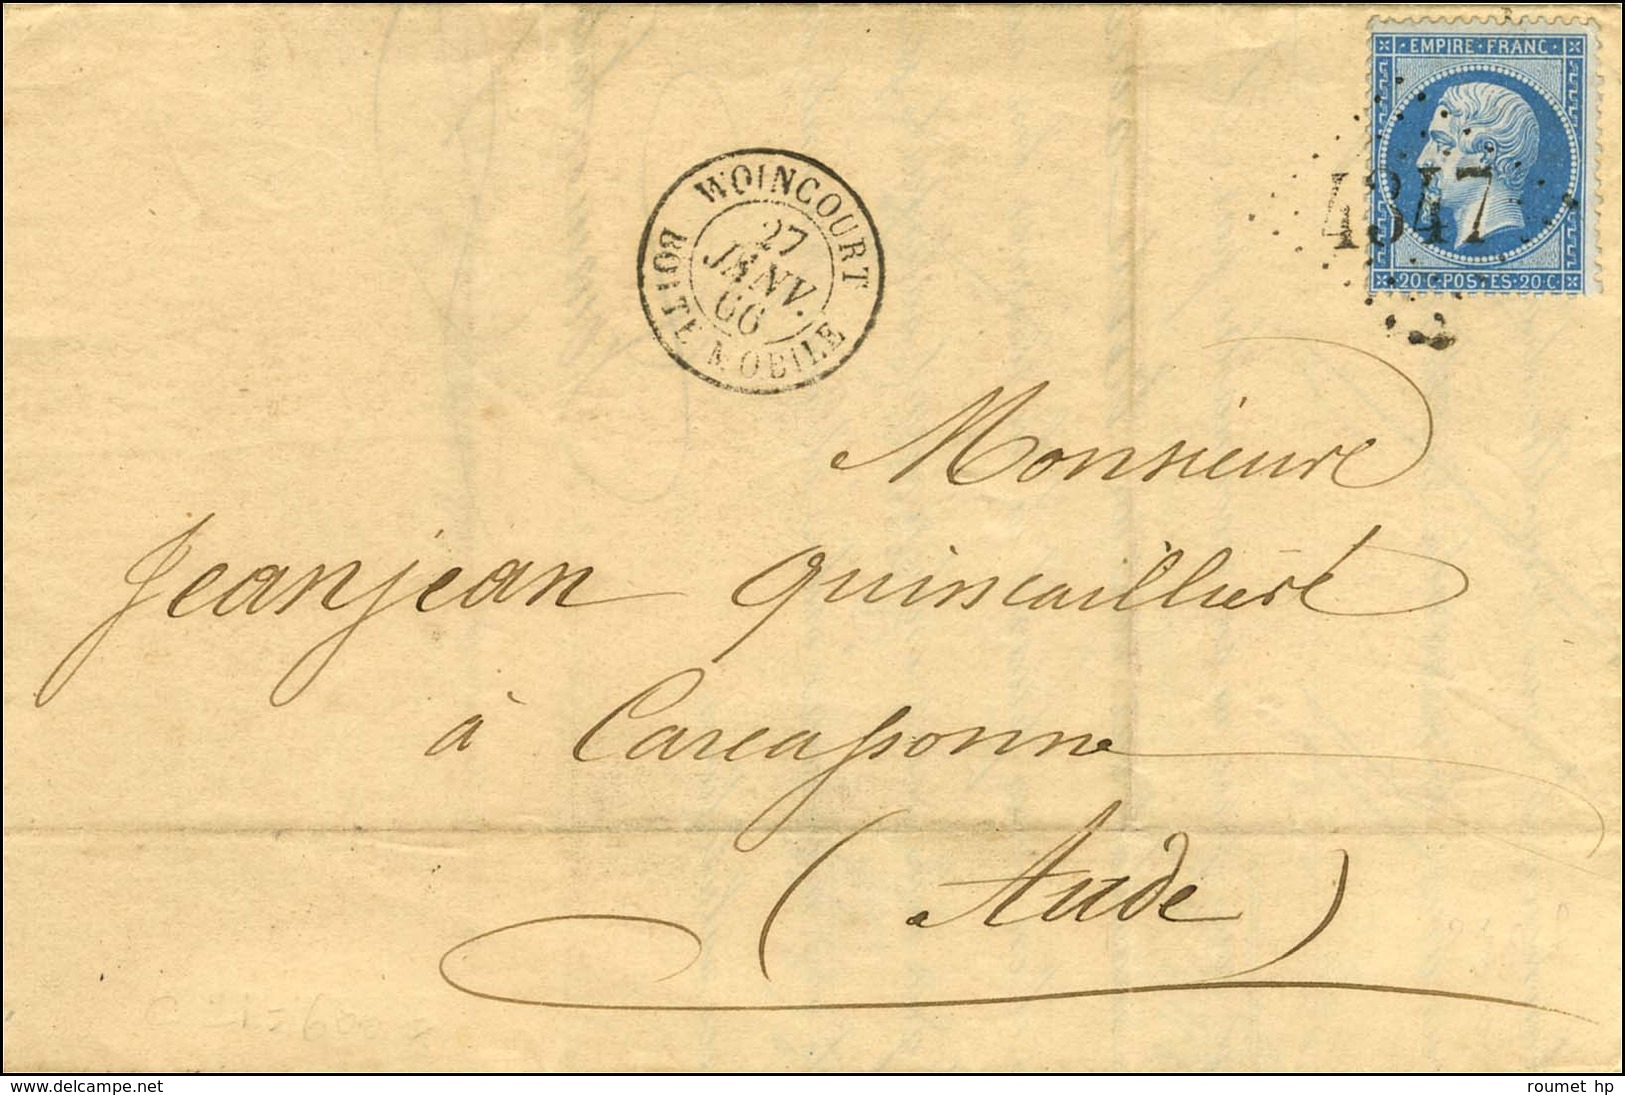 EMPIRE·FRANC·
4347
20 C·POSTES·20 C·
WOINCOURT
27
JANV.
66
BOITE MOBILE
Monsieure
Jeanjean Quincaillière
à Carcassonne
(Aude)
www.delcampe.net
roumet hp